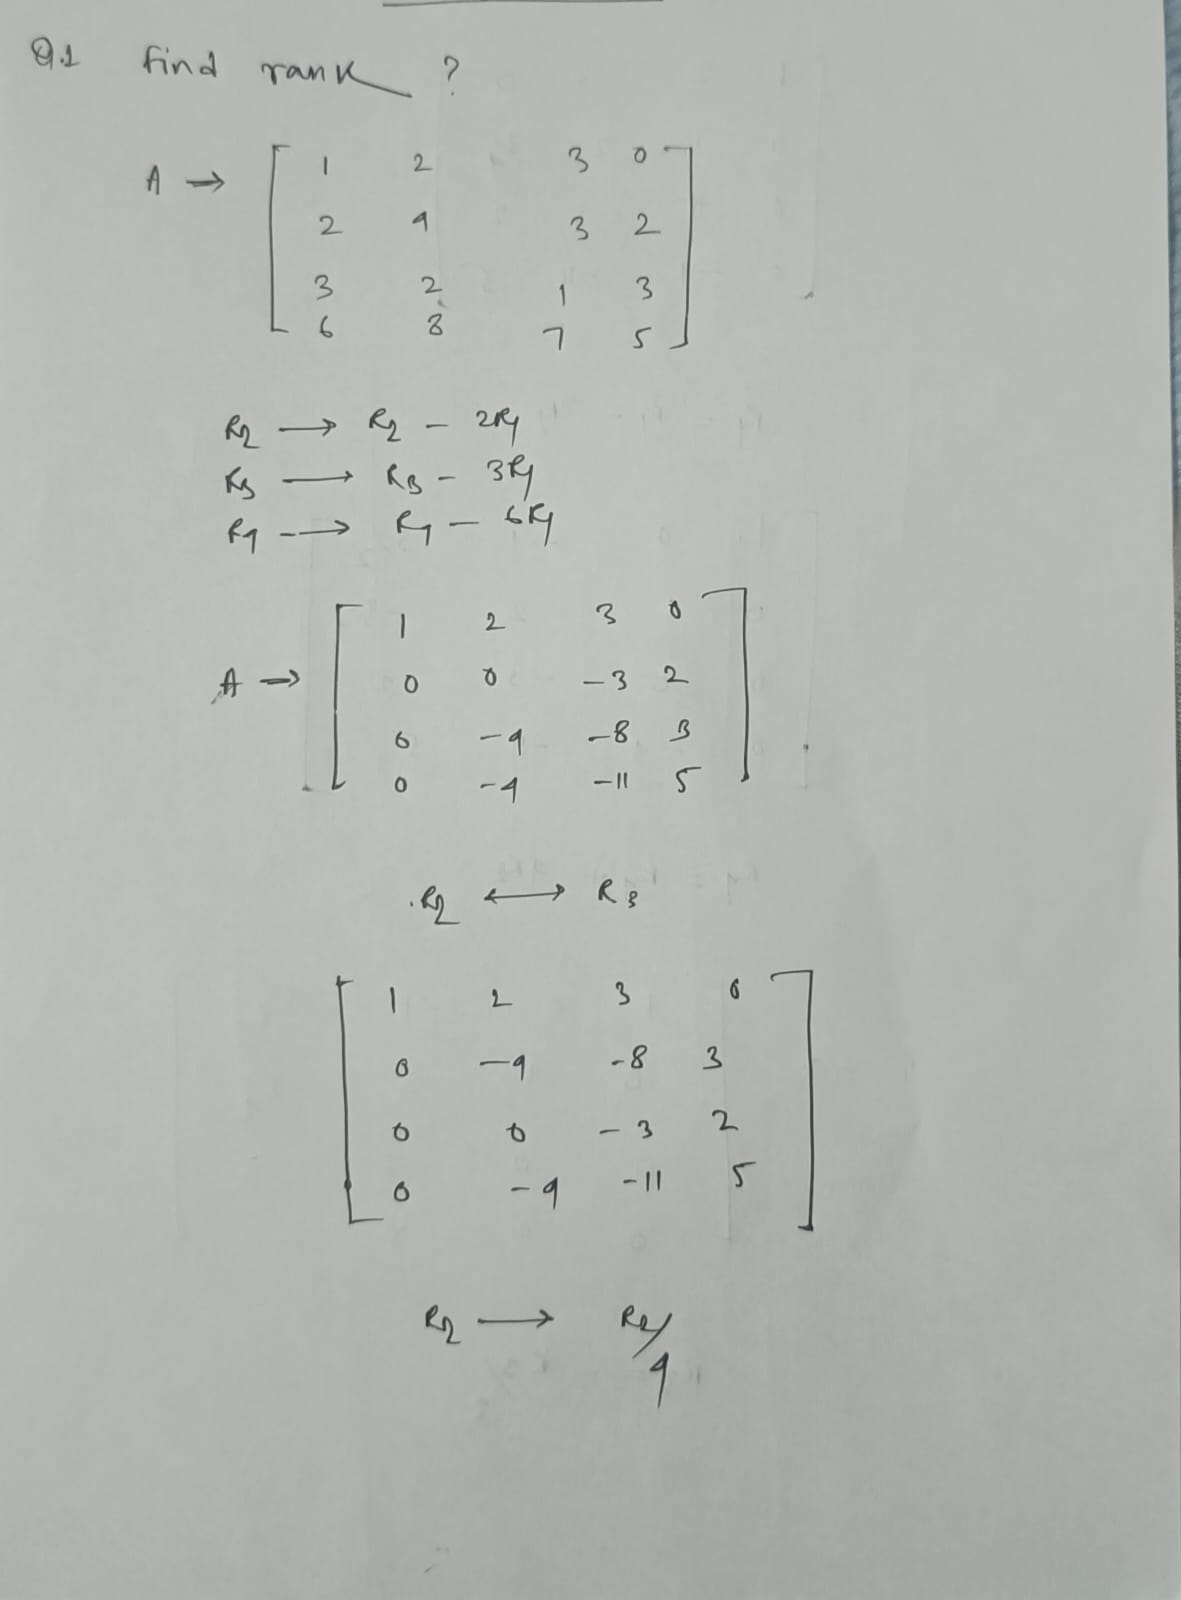 Q.1 find rank ?
A → [ 1 2 3 0
2 4 3 2
3 2 1 3
6 8 7 5 ]
R2 → R2 - 2R1
R3 → R3 - 3R1
R4 → R4 - 6R1
A → [ 1 2 3 0
0 0 -3 2
0 -4 -8 3
0 -4 -11 5 ]
R2 ↔ R3
[ 1 2 3 0
0 -4 -8 3
0 0 -3 2
0 -4 -11 5 ]
R2 → R2/4